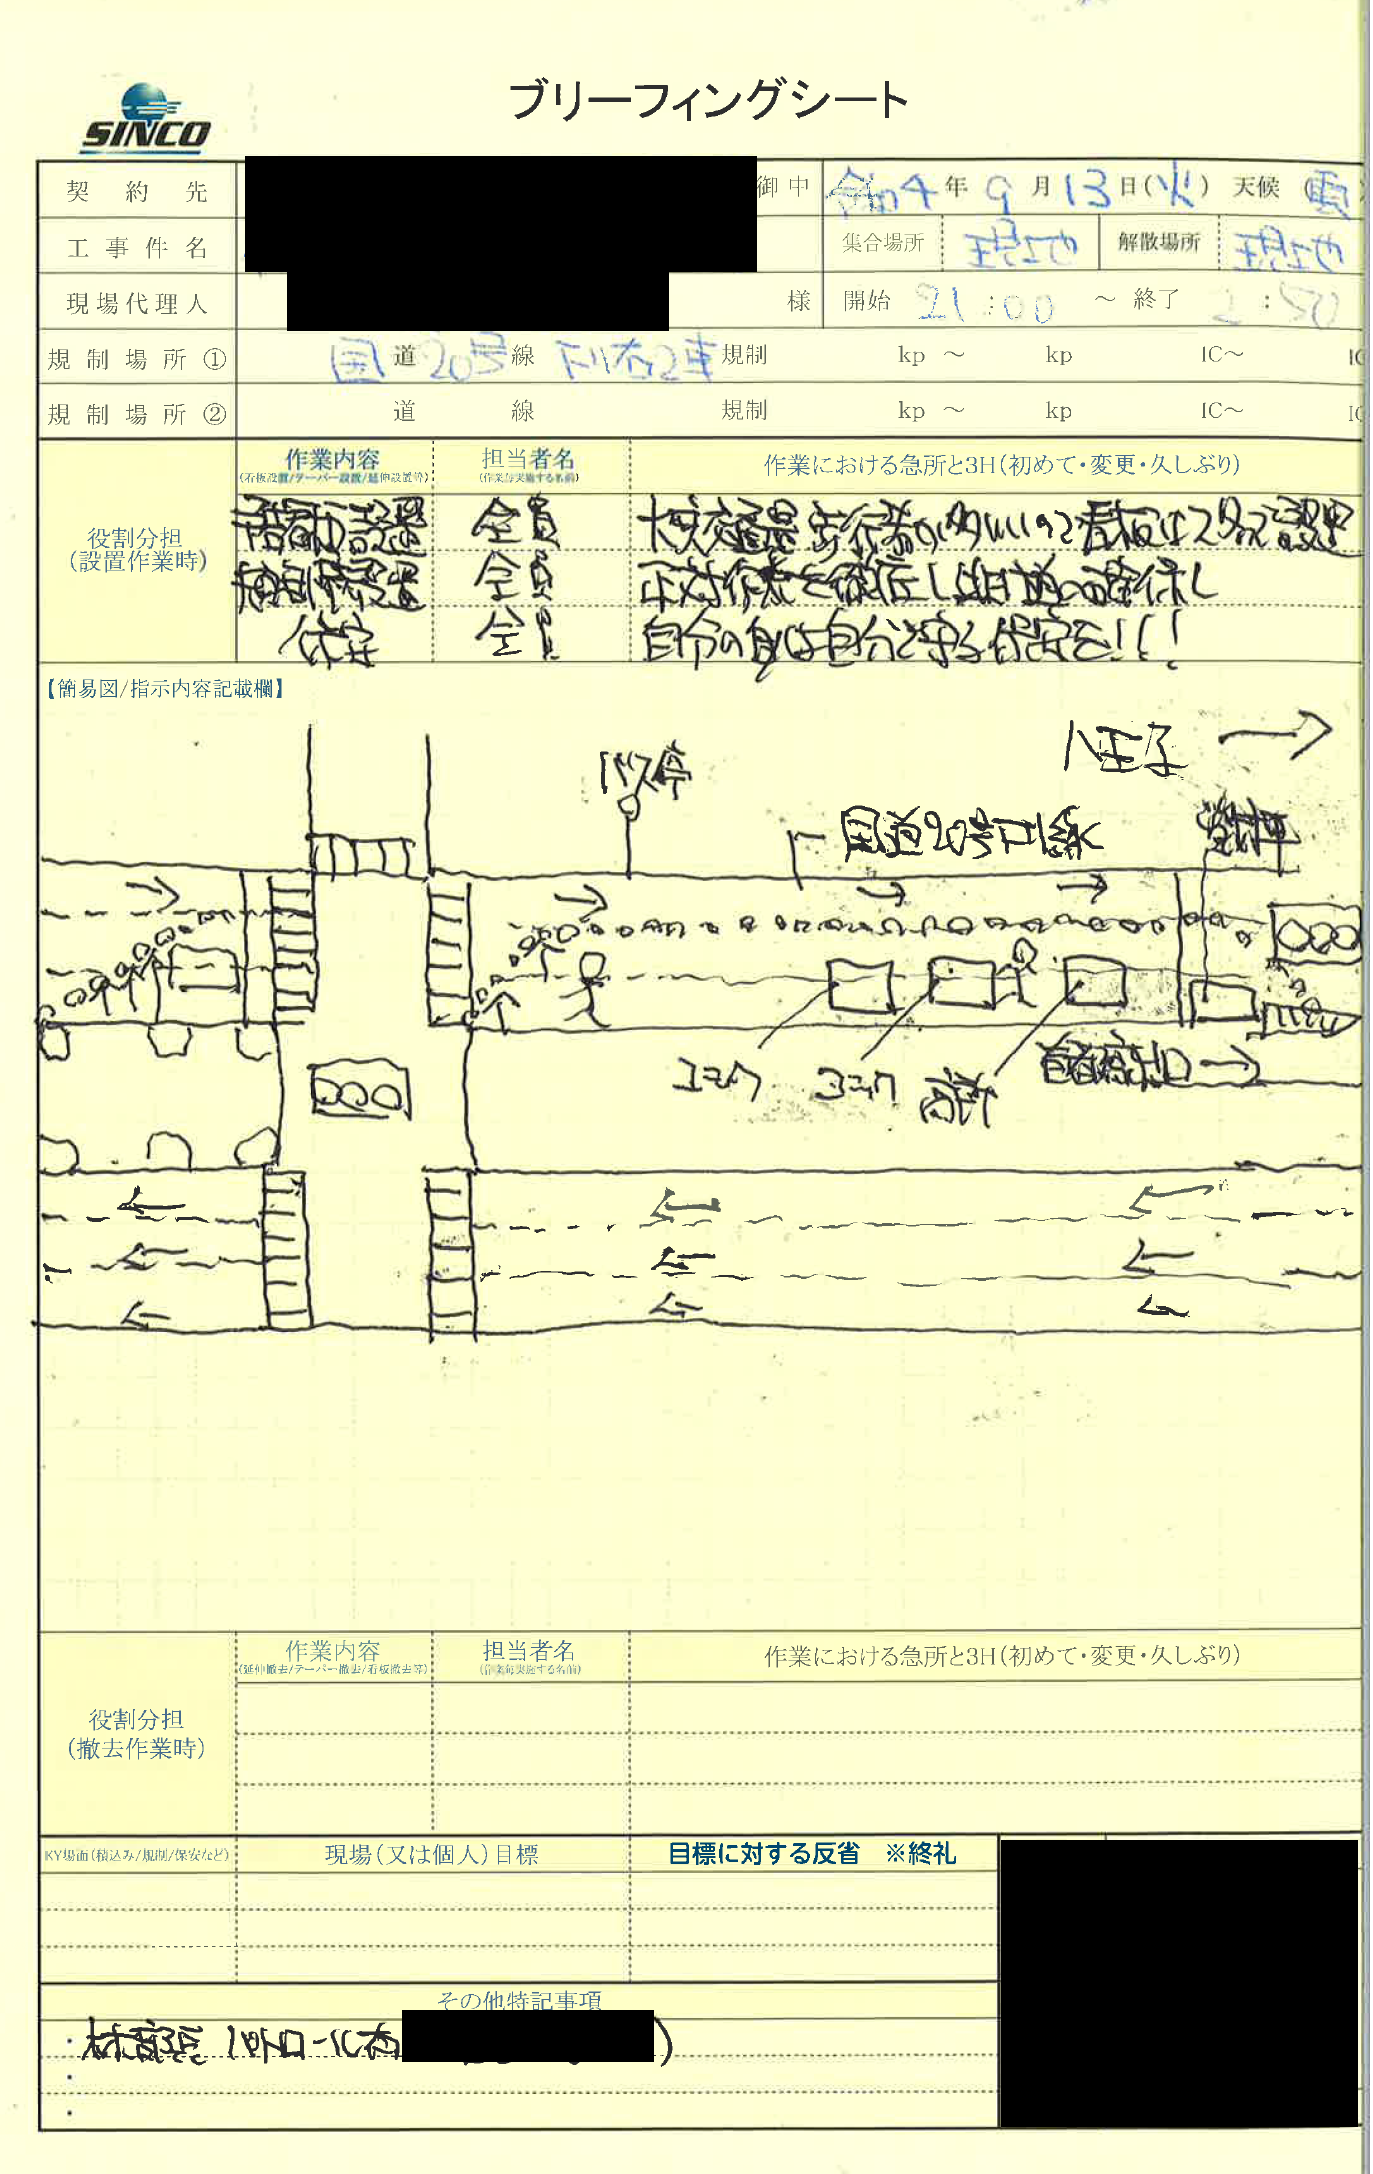 ブリーフィングシート
SINCO
契約先 御中 令和4年9月13日(火) 天候(
工事件名 集合場所 解散場所
現場代理人 様 開始 21:00 ～ 終了 :50
規制場所① 国道20号線 下り右2車規制 kp ～ kp IC～
規制場所② 道 線 規制 kp ～ kp IC～
役割分担
(設置作業時)
作業内容 担当者名 作業における急所と3H(初めて・変更・久しぶり)
(看板設置/テーパー設置/延伸設置等) (作業毎実施する名前)
看板設置 全員 交通量 歩行者が多いので看板は2名で設置
規制帯設置 全員 正対作業を徹底し の確保
保安 全員 自分の身は自分で守る保安を!!!
【簡易図/指示内容記載欄】
八王子 →
バス停
国道20号下り線
ユニック 3ニック 高所 出口→
役割分担
(撤去作業時)
作業内容 担当者名 作業における急所と3H(初めて・変更・久しぶり)
(延伸撤去/テーパー撤去/看板撤去等) (作業毎実施する名前)
KY場面(積込み/規制/保安など) 現場(又は個人)目標 目標に対する反省 ※終礼
その他特記事項
・ パトロール者 )
・
・